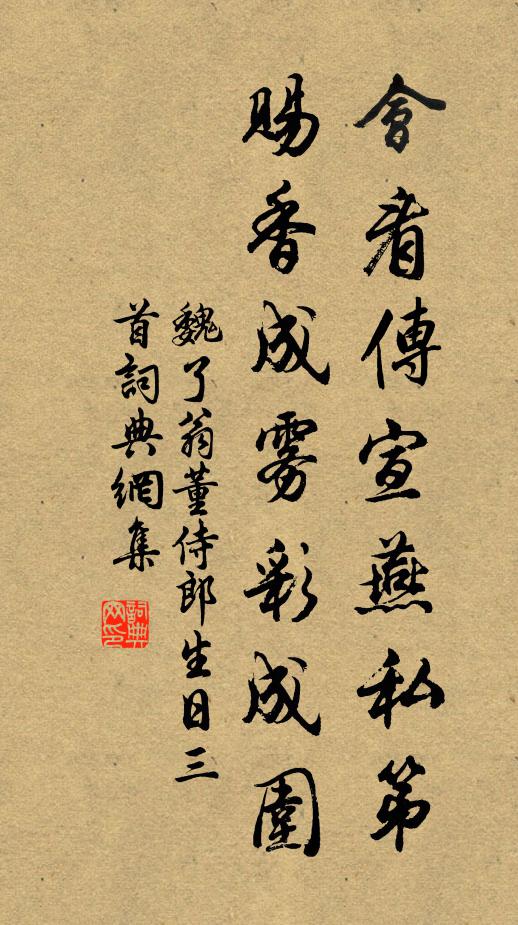 會看傳宣燕私第
賜香成雾彩成圍
魏了翁董侍郎生日三
首詞典網集
詞典
网印